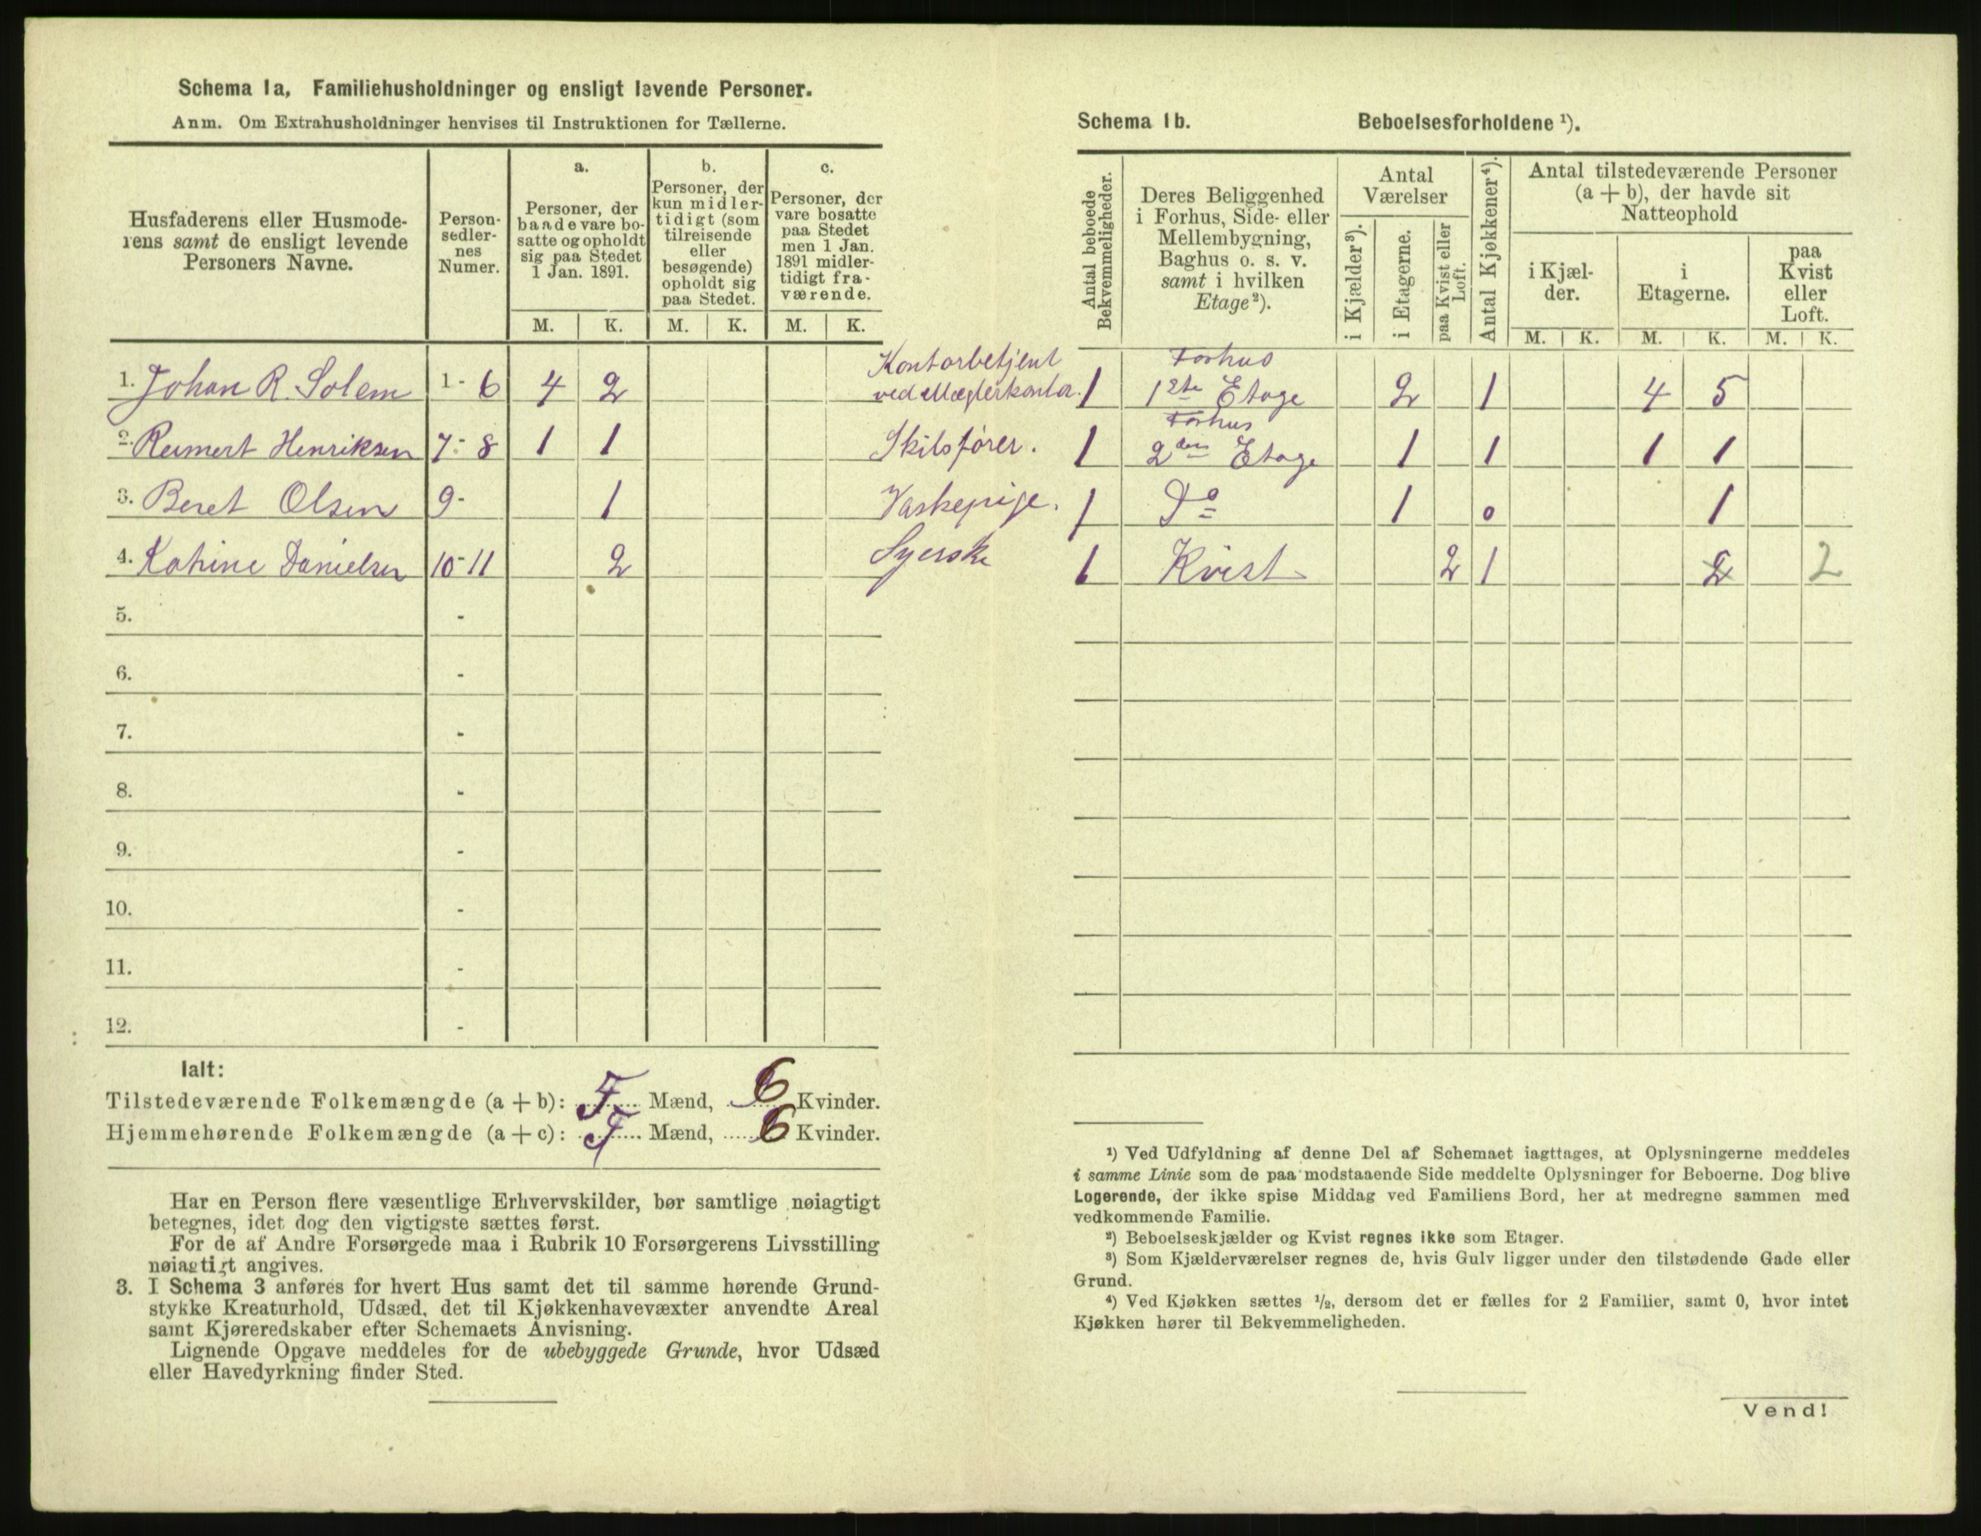 Schema 1a, Familiehusholdninger og ensligt levende Personer.
Anm. Om Extrahusholdninger henvises til Instruktionen for Tællerne.
Husfaderens eller Husmode-
rens samt de ensligt levende
Personers Navne.
Person-
sedler-
nes
Numer.
a.
Personer, der
baade vare bo-
satte og opholdt
sig paa Stedet
1 Jan. 1891.
b.
Personer, der
kun midler-
tidigt (som
tilreisende
eller
besøgende)
opholdt sig
paa Stedet.
c.
Personer, der
vare bosatte
paa Stedet
men 1 Jan.
1891 midler-
tidigt fra-
værende.
M. K. M. K. M. K.
1. Johan R. Solem 1 - 6 4 2 Kontorbetjent
ved Mæglerkontor.
2. Reimert Henriksen 7 - 8 1 1 Skibsfører.
3. Beret Olsen 9 - 1 Vaskepige.
4. Katrine Danielsen 10 - 11 2 Syerske
5. -
6. -
7. -
8. -
9. -
10. -
11. -
12. -
Ialt:
Tilstedeværende Folkemængde (a + b): 5 Mænd, 6 Kvinder.
Hjemmehørende Folkemængde (a + c): 5 Mænd, 6 Kvinder.
Har en Person flere væsentlige Erhvervskilder, bør samtlige nøiagtigt
betegnes, idet dog den vigtigste sættes først.
For de af Andre Forsørgede maa i Rubrik 10 Forsørgerens Livsstilling
nøiagtigt angives.
3. I Schema 3 anføres for hvert Hus samt det til samme hørende Grund-
stykke Kreaturhold, Udsæd, det til Kjøkkenhavevæxter anvendte Areal
samt Kjøreredskaber efter Schemaets Anvisning.
Lignende Opgave meddeles for de ubebyggede Grunde, hvor Udsæd
eller Havedyrkning finder Sted.
Schema 1b. Beboelsesforholdene ¹).
Antal beboede
Bekvemmeligheder.
Deres Beliggenhed
i Forhus, Side- eller
Mellembygning,
Baghus o. s. v.
samt i hvilken
Etage²).
Antal
Værelser
i Kjælder³).
i Etagerne.
paa Kvist eller
Loft.
Antal Kjøkkener⁴).
Antal tilstedeværende Personer
(a + b), der havde sit
Natteophold
i Kjæl-
der.
i
Etagerne.
paa
Kvist
eller
Loft.
M. K. M. K. M. K.
Forhus
1 1ste Etage 2 1 4 5
Forhus
1 2den Etage 1 1 1 1
1 Do 1 0 1
1 Kvist 2 1 2 2
¹) Ved Udfyldning af denne Del af Schemaet iagttages, at Oplysningerne meddeles
i samme Linie som de paa modstaaende Side meddelte Oplysninger for Beboerne. Dog blive
Logerende, der ikke spise Middag ved Familiens Bord, her at medregne sammen med
vedkommende Familie.
²) Beboelseskjælder og Kvist regnes ikke som Etager.
³) Som Kjælderværelser regnes de, hvis Gulv ligger under den tilstødende Gade eller
Grund.
⁴) Ved Kjøkken sættes ½, dersom det er fælles for 2 Familier, samt 0, hvor intet
Kjøkken hører til Bekvemmeligheden.
Vend!